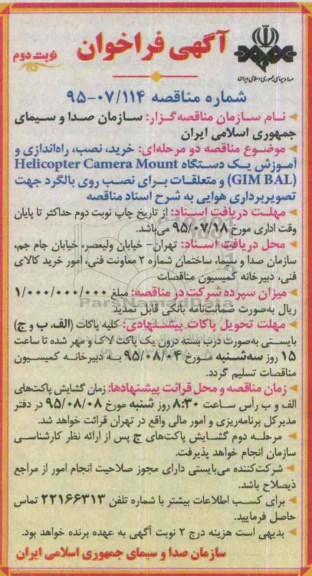 آگهی فراخوان
نوبت دوم
صدا و سیمای جمهوری اسلامی ایران
شماره مناقصه ۹۵-۰۷/۱۱۴
نـام سـازمان مناقصه‌گـزار: سـازمان صـدا و سـیمای
جمهوری اسلامی ایران
موضـوع مناقصه دو مرحله‌ای: خرید، نصب، راه‌اندازی و
آمـوزش یـک دستگـاه Helicopter Camera Mount
(GIM BAL) و متعلقـات بـرای نصـب روی بالگرد جهت
تصویربرداری هوایی به شرح اسناد مناقصه
مهلـت دریافت اسـناد: از تاریخ چاپ نوبت دوم حداکثر تا پایان
وقت اداری مورخ ۹۵/۰۷/۱۸ می‌باشد.
محل دریافت اسـناد: تهران- خیابان ولیعصر، خیابان جام جم،
سازمان صدا و سیما، ساختمان شماره ۲ معاونت فنی، امور خرید کالای
فنی، دبیرخانه کمیسیون مناقصات
میـزان سپرده شرکت در مناقصه: مبلغ ۱/۰۰۰/۰۰۰/۰۰۰
ریال به‌صورت ضمانت‌نامه بانکی قابل تمدید
مهلت تحویل پاکات پیشنهـادی: کلیه پاکات (الف، ب و ج)
بایستـی به‌صورت درب بسته درون یک پاکت لاک و مهر شده تا ساعت
۱۵ روز سه‌شنبـه مـورخ ۹۵/۰۸/۰۴ بـه دبیرخانـه کمیسیـون
مناقصات تسلیم گردد.
زمان مناقصه و محل قرائت پیشنهادها: زمان گشایش پاکت‌های
الف و ب راس ساعت ۸:۳۰ روز شنبه مورخ ۹۵/۰۸/۰۸ در دفتر
مدیرکل برنامه‌ریزی و امور مالی واقع در تهران قرائت خواهد شد.
مرحلـه دوم گشـایش پاکت‌های ج پس از ارائه نظر کارشناسی
سازمان انجام خواهد پذیرفت.
شرکت‌کننده می‌بایستی دارای مجوز صلاحیت انجام امور از مراجع
ذیصلاح باشد.
برای کسـب اطلاعات بیشتر با شماره تلفن ۲۲۱۶۶۳۱۳ تماس
حاصل فرمایید.
بدیهی است هزینه درج ۲ نوبت آگهی به عهده برنده خواهد بود.
سازمان صدا و سیمای جمهوری اسلامی ایران